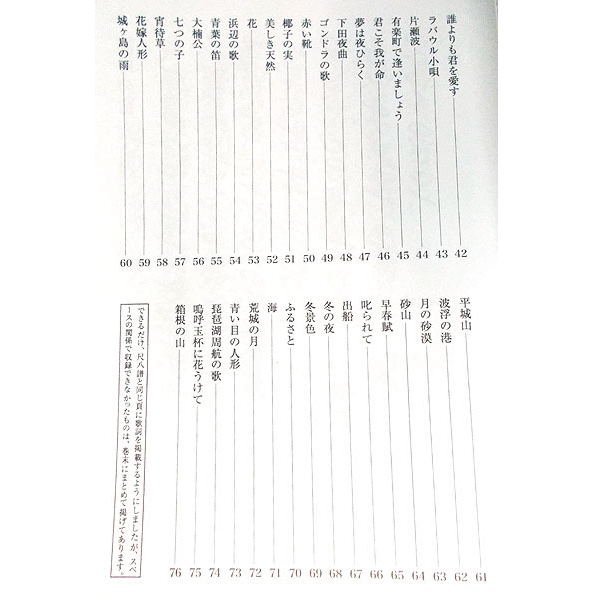 誰よりも君を愛す 42
ラバウル小唄 43
片瀬波 44
有楽町で逢いましょう 45
君こそ我が命 46
夢は夜ひらく 47
下田夜曲 48
ゴンドラの歌 49
赤い靴 50
椰子の実 51
美しき天然 52
花 53
浜辺の歌 54
青葉の笛 55
大楠公 56
七つの子 57
宵待草 58
花嫁人形 59
城ヶ島の雨 60
平城山 61
波浮の港 62
月の砂漠 63
砂山 64
早春賦 65
叱られて 66
出船 67
冬の夜 68
冬景色 69
ふるさと 70
海 71
荒城の月 72
青い目の人形 73
琵琶湖周航の歌 74
嗚呼玉杯に花うけて 75
箱根の山 76
できるだけ、尺八譜と同じ頁に歌詞を掲載するようにしましたが、スペ
ースの関係で収録できなかったものは、巻末にまとめて掲げてあります。